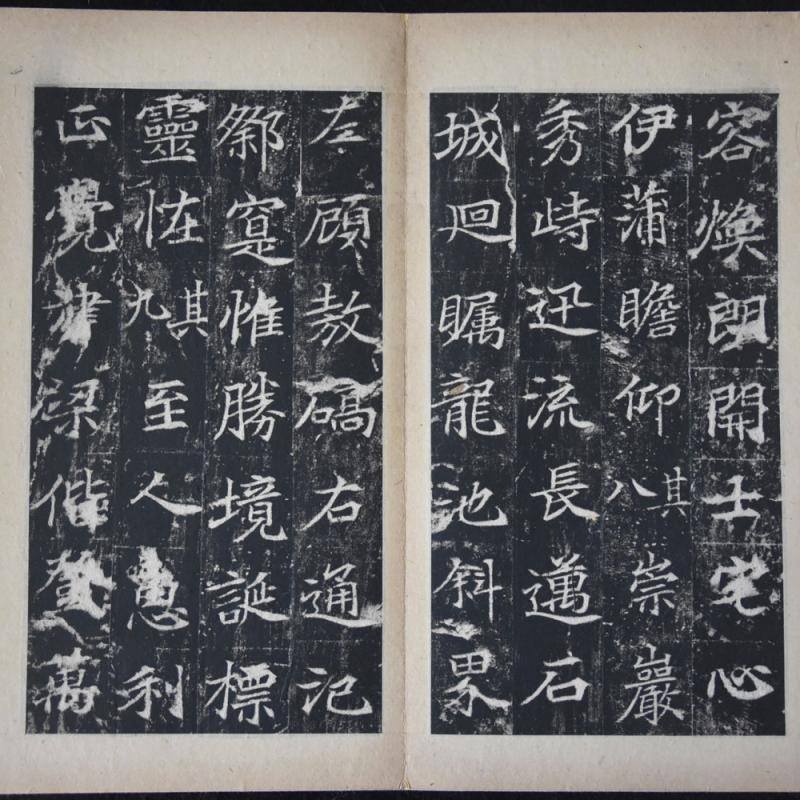 容煥朗開士宅心
伊蒲瞻仰其八崇巖
秀峙迅流長邁石
城迴矚龍池斜界
左顧敖碻右通汜
寔惟勝境誕標
靈恠其九至人惠利
正覺津梁偕登萬